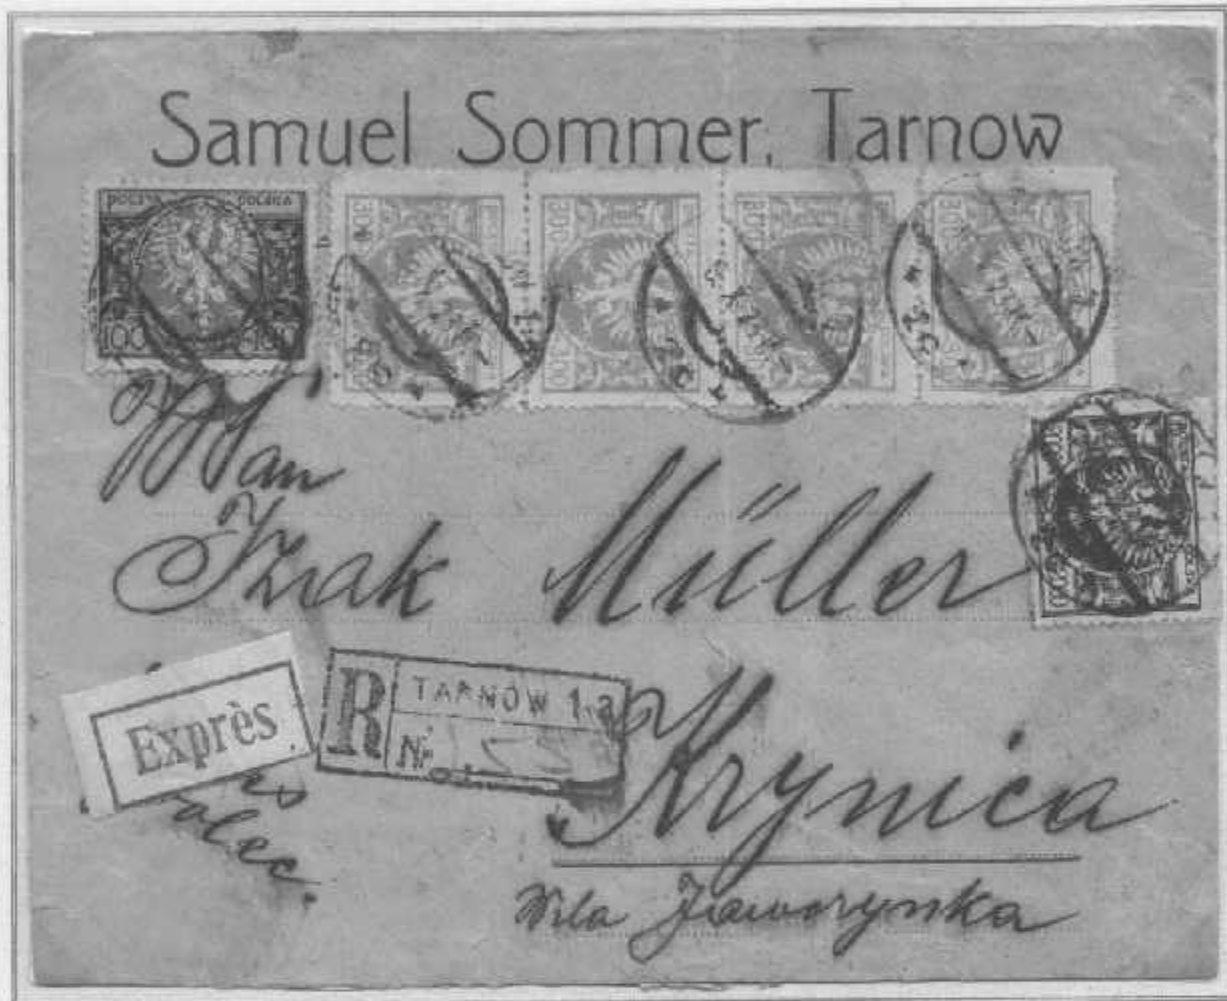 Samuel Sommer, Tarnow
POCZTA POLSKA
100 100
300
300
300
300
300
Pan
Izak Müller
Exprès
R TARNÓW 1.a
Nr
polec.
Krynica
Wila Jaworzynka